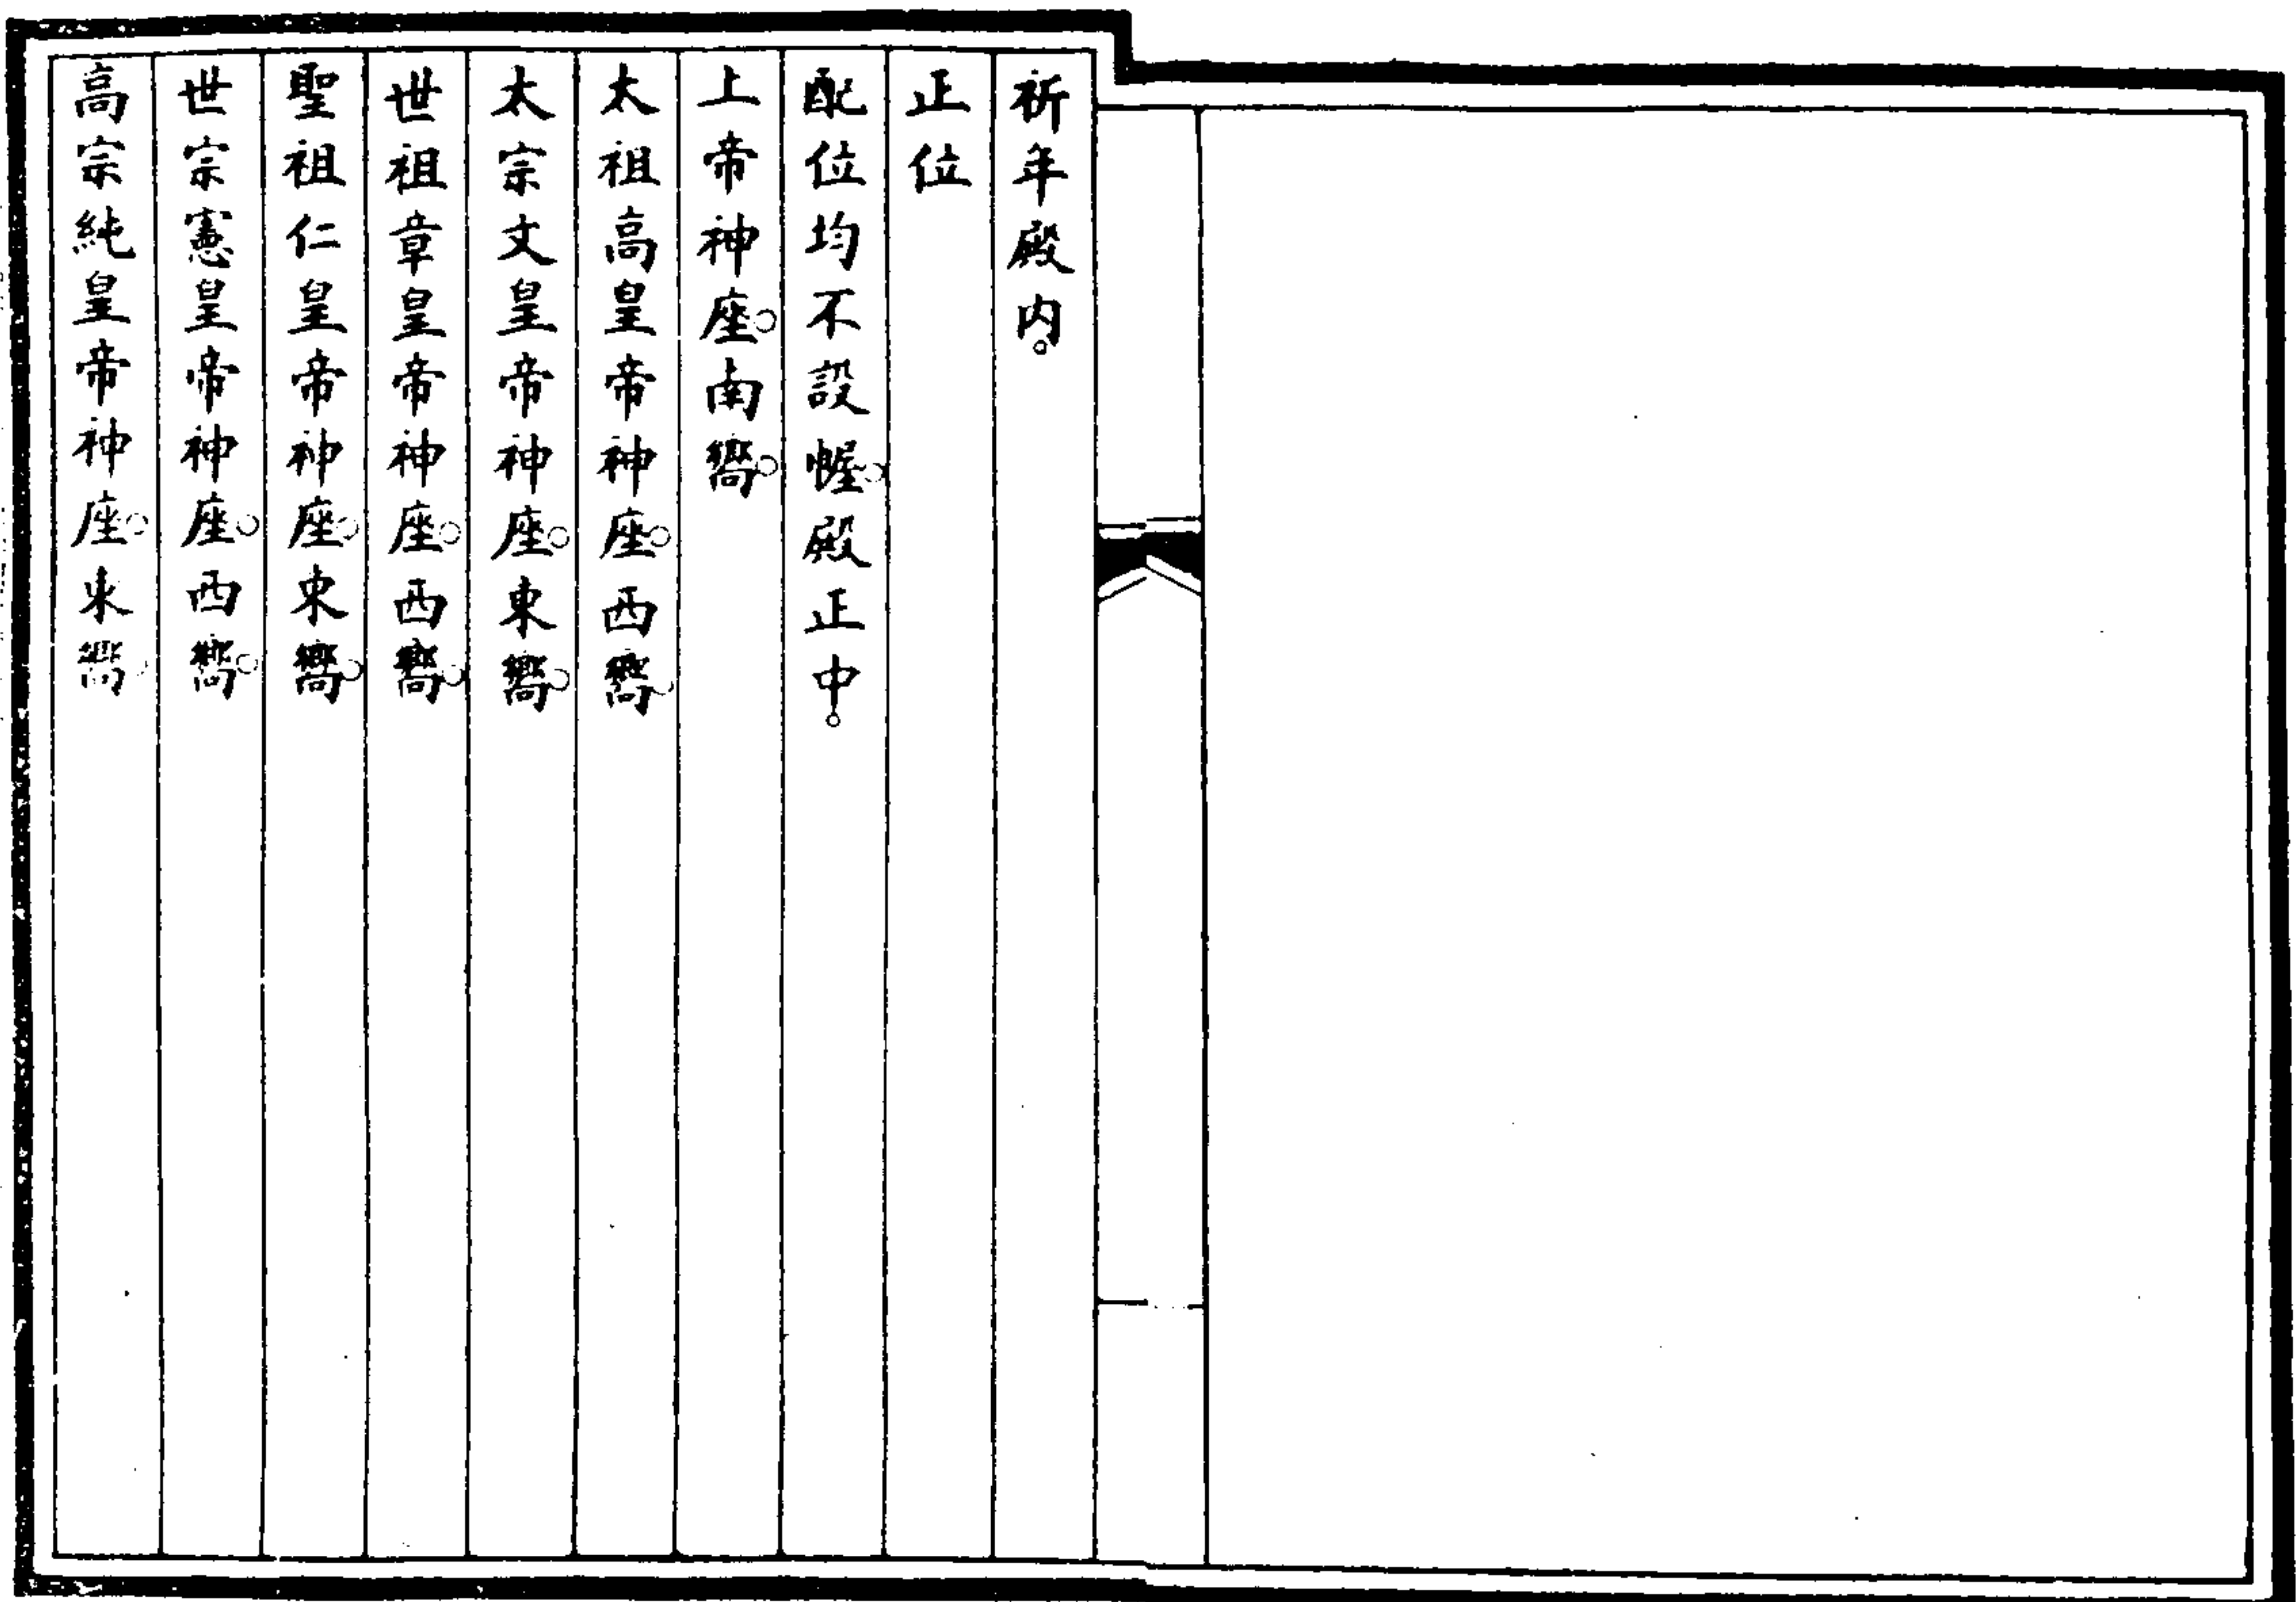 祈年殿内。
正位
配位均不設幄。殿正中。
上帝神座。南嚮。
太祖高皇帝神座。西嚮。
太宗文皇帝神座。東嚮。
世祖章皇帝神座。西嚮。
聖祖仁皇帝神座。東嚮。
世宗憲皇帝神座。西嚮。
高宗純皇帝神座。東嚮。